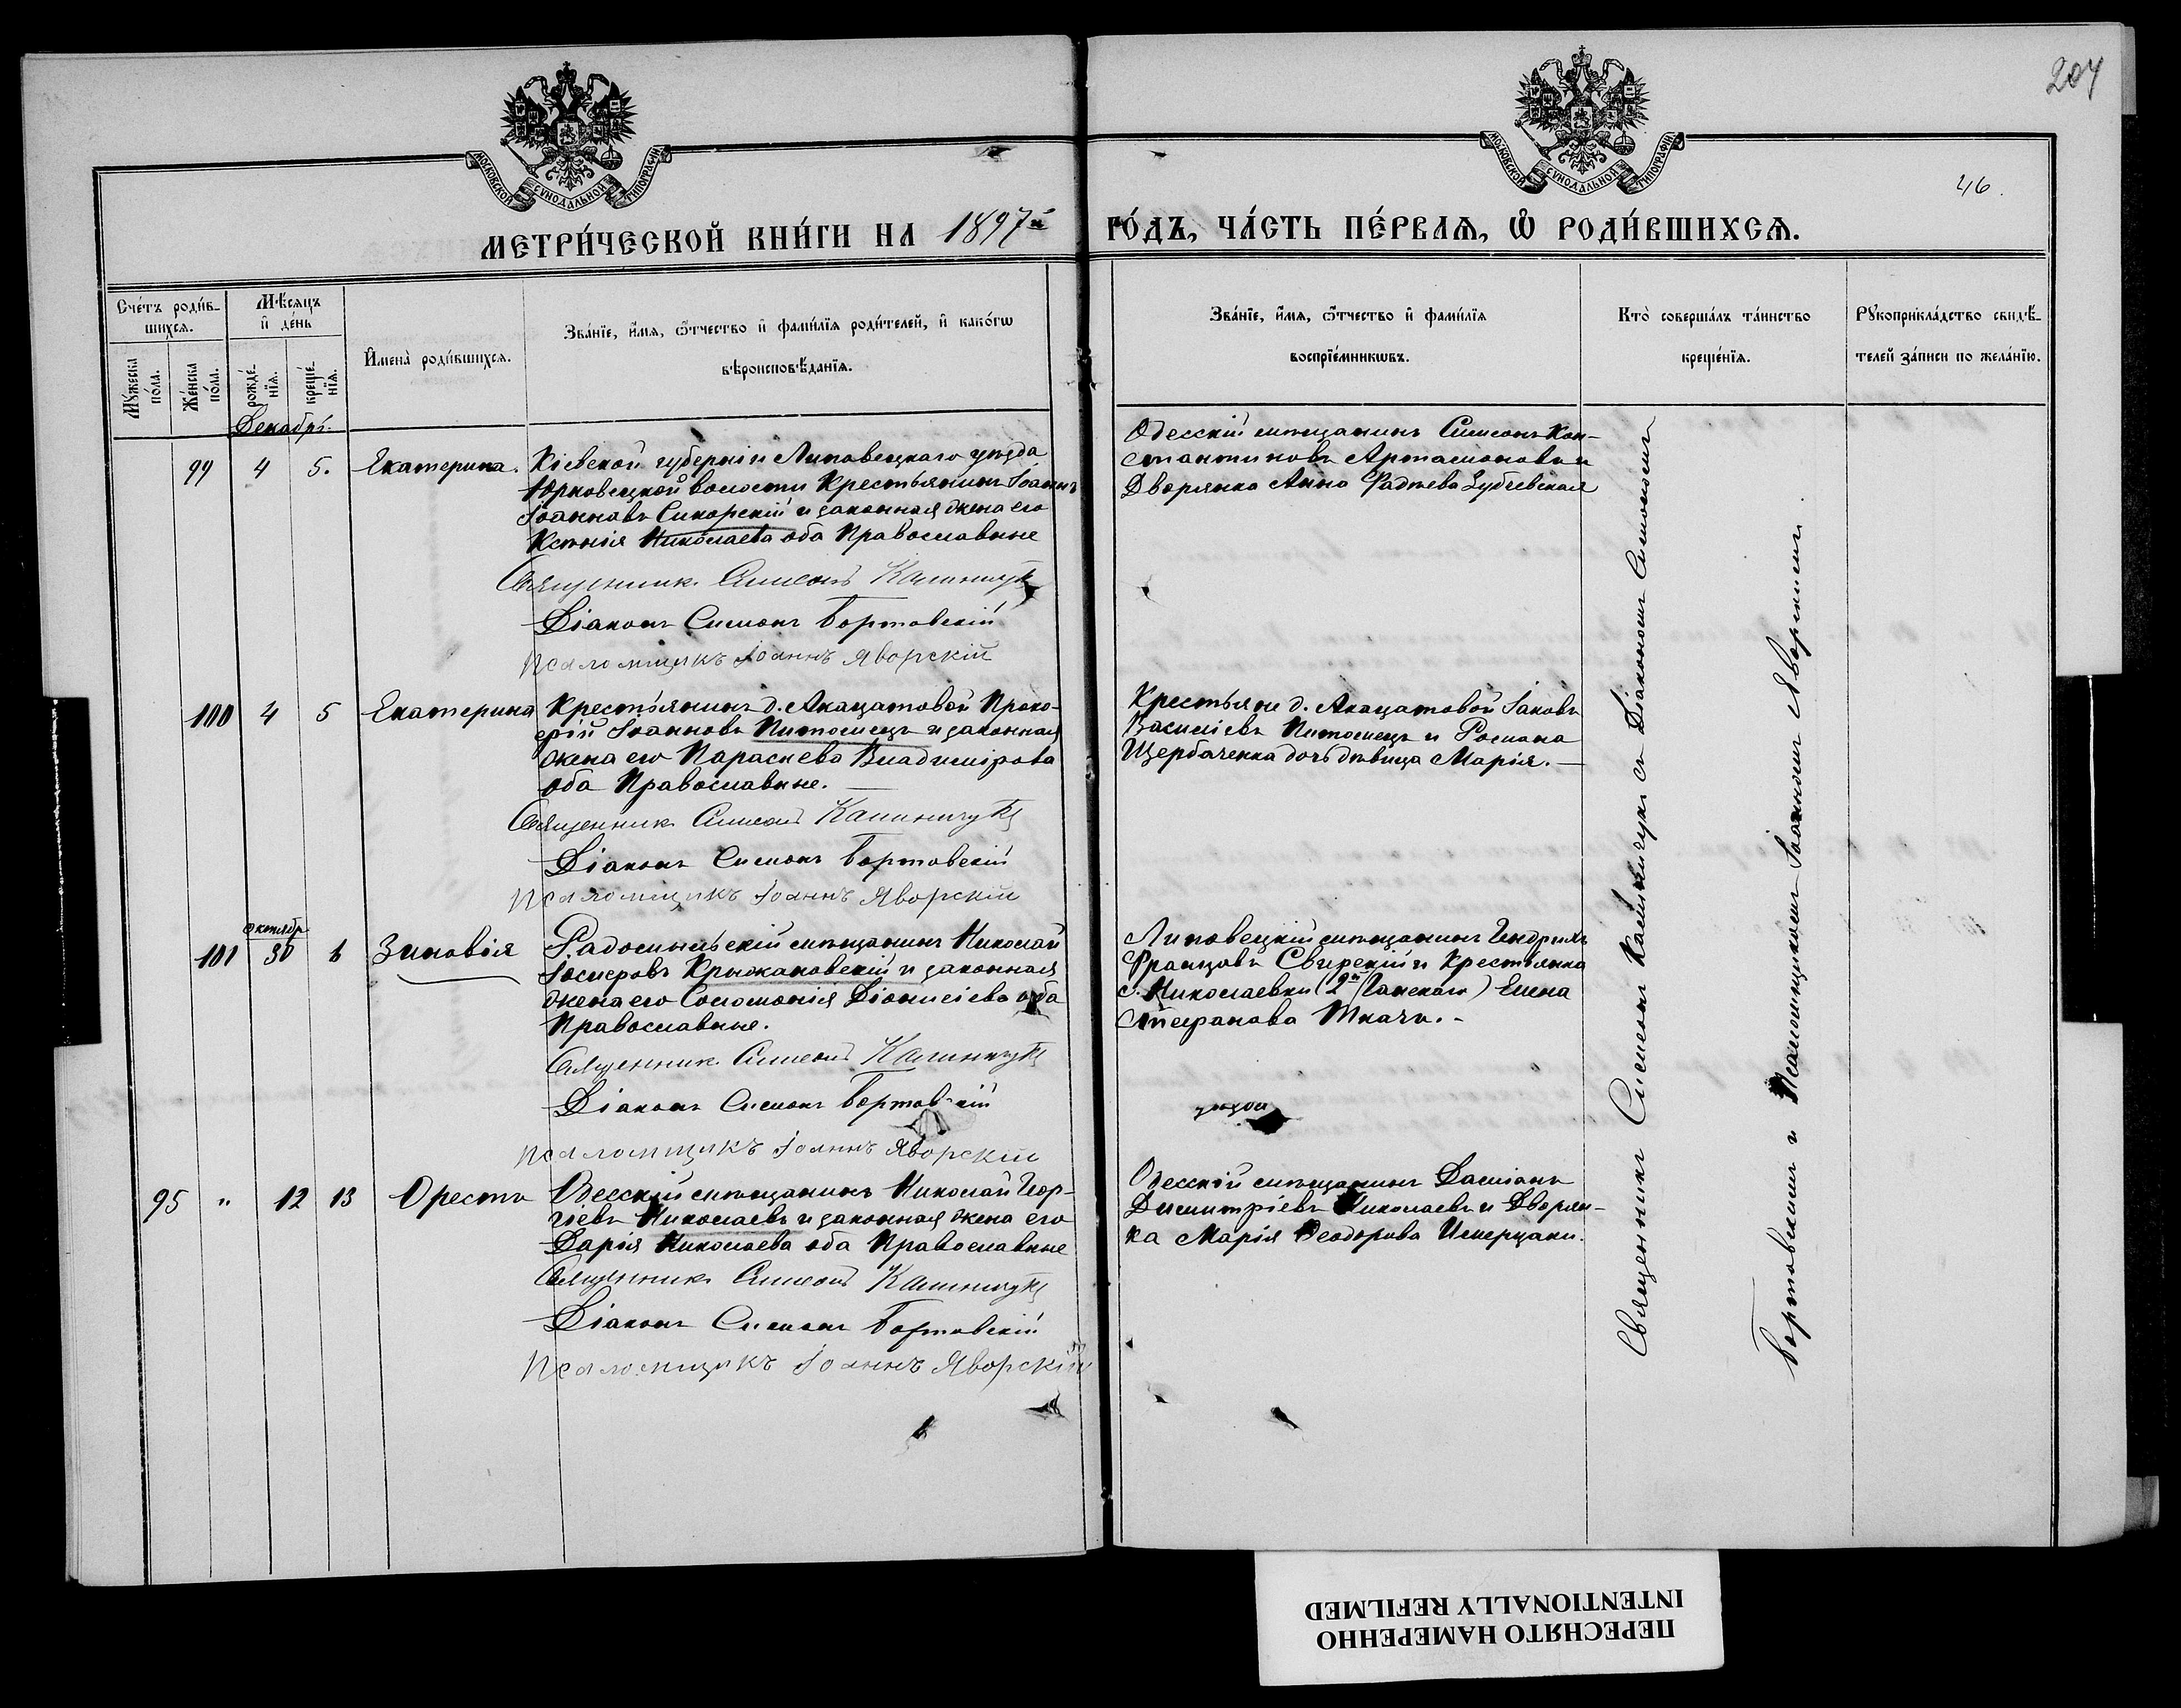 204
46.
МОСКОВСКОЙ СѴНОДАЛЬНОЙ ТИПОГРАФІИ
МОСКОВСКОЙ СѴНОДАЛЬНОЙ ТИПОГРАФІИ
МЕТРИ́ЧЕСКОЙ КНИ́ГИ НА 1897й ГО́ДЪ, ЧА́СТЬ ПЕ́РВАѦ, Ѡ҆ РОДИ́ВШИХСѦ.
Сче́тъ роди́в-
шихсѧ.
Мꙋ́жеска по́ла.
Же́нска по́ла.
Мѣ́сѧцъ
и҆ де́нь
рожде́-
нїѧ.
креще́-
нїѧ.
И҆мена̀ роди́вшихсѧ.
Зва́нїе, и҆́мѧ, ѻ҆́тчество и҆ фами́лїѧ роди́телей, и҆ како́гѡ
вѣроисповѣ́данїѧ.
Зва́нїе, и҆́мѧ, ѻ҆́тчество и҆ фами́лїѧ
воспрїе́мникѡвъ.
Кто̀ соверша́лъ та́инство
креще́нїѧ.
Рꙋкоприкла́дство свидѣ́-
телей за́писи по жела́нїю.
Декабрь.
99 4 5. Екатерина.
Кіевской губерніи Липовецкаго уѣзда
Юрковецкой волости Крестьянинъ Іоаннъ
Іоанновъ Сикорскій и законная жена его
Ксенія Николаева оба Православные
Священникъ Симеонъ Калинчукъ
Діаконъ Симонъ Бортовскій
Псаломщикъ Іоаннъ Яворскій
Одесскій мѣщанинъ Симеонъ Кон-
стантиновъ Артамоновъ и
Дворянка Анна Фадѣева Зубчевская
100 4 5 Екатерина
Крестьянинъ д. Акацатовой Проко-
фій Іоанновъ Питомецъ и законная
жена его Параскева Владимірова
оба Православные.
Священникъ Симеонъ Калинчукъ
Діаконъ Симонъ Бортовскій
Псаломщикъ Іоаннъ Яворскій
Крестьяне д. Акацатовой Іаковъ
Василіевъ Питомецъ и Романа
Щербаченка дочь дѣвица Марія.
Октябр
101 30 6 Зиновія
Радомысльскій мѣщанинъ Николай
Іосифовъ Крыжановскій и законная
жена его Соломонія Діонисіева оба
Православные.
Священникъ Симеонъ Калинчукъ
Діаконъ Симонъ Бортовскій
Псаломщикъ Іоаннъ Яворскій
Липовецкій мѣщанинъ Гендрихъ
Францовъ Свирскій и Крестьянка
с. Николаевки (2й Ганскаго) Елена
Стефанова Ткачъ.
95 " 12 13 Орестъ
Одесскій мѣщанинъ Николай Геор-
гіевъ Николаевъ и законная жена его
Дарія Николаева оба Православные
Священникъ Симеонъ Калинчукъ
Діаконъ Симонъ Бортовскій
Псаломщикъ Іоаннъ Яворскій
Одесскій мѣщанинъ Даміанъ
Димитріевъ Николаевъ и Дворян-
ка Марія Ѳеодорова
Священникъ Симеонъ Калинчукъ съ Діакономъ Симономъ
Бортовскимъ и Псаломщикомъ Іоанномъ Яворскимъ.
ПЕРЕСНЯТО НАМЕРЕННО
INTENTIONALLY REFILMED